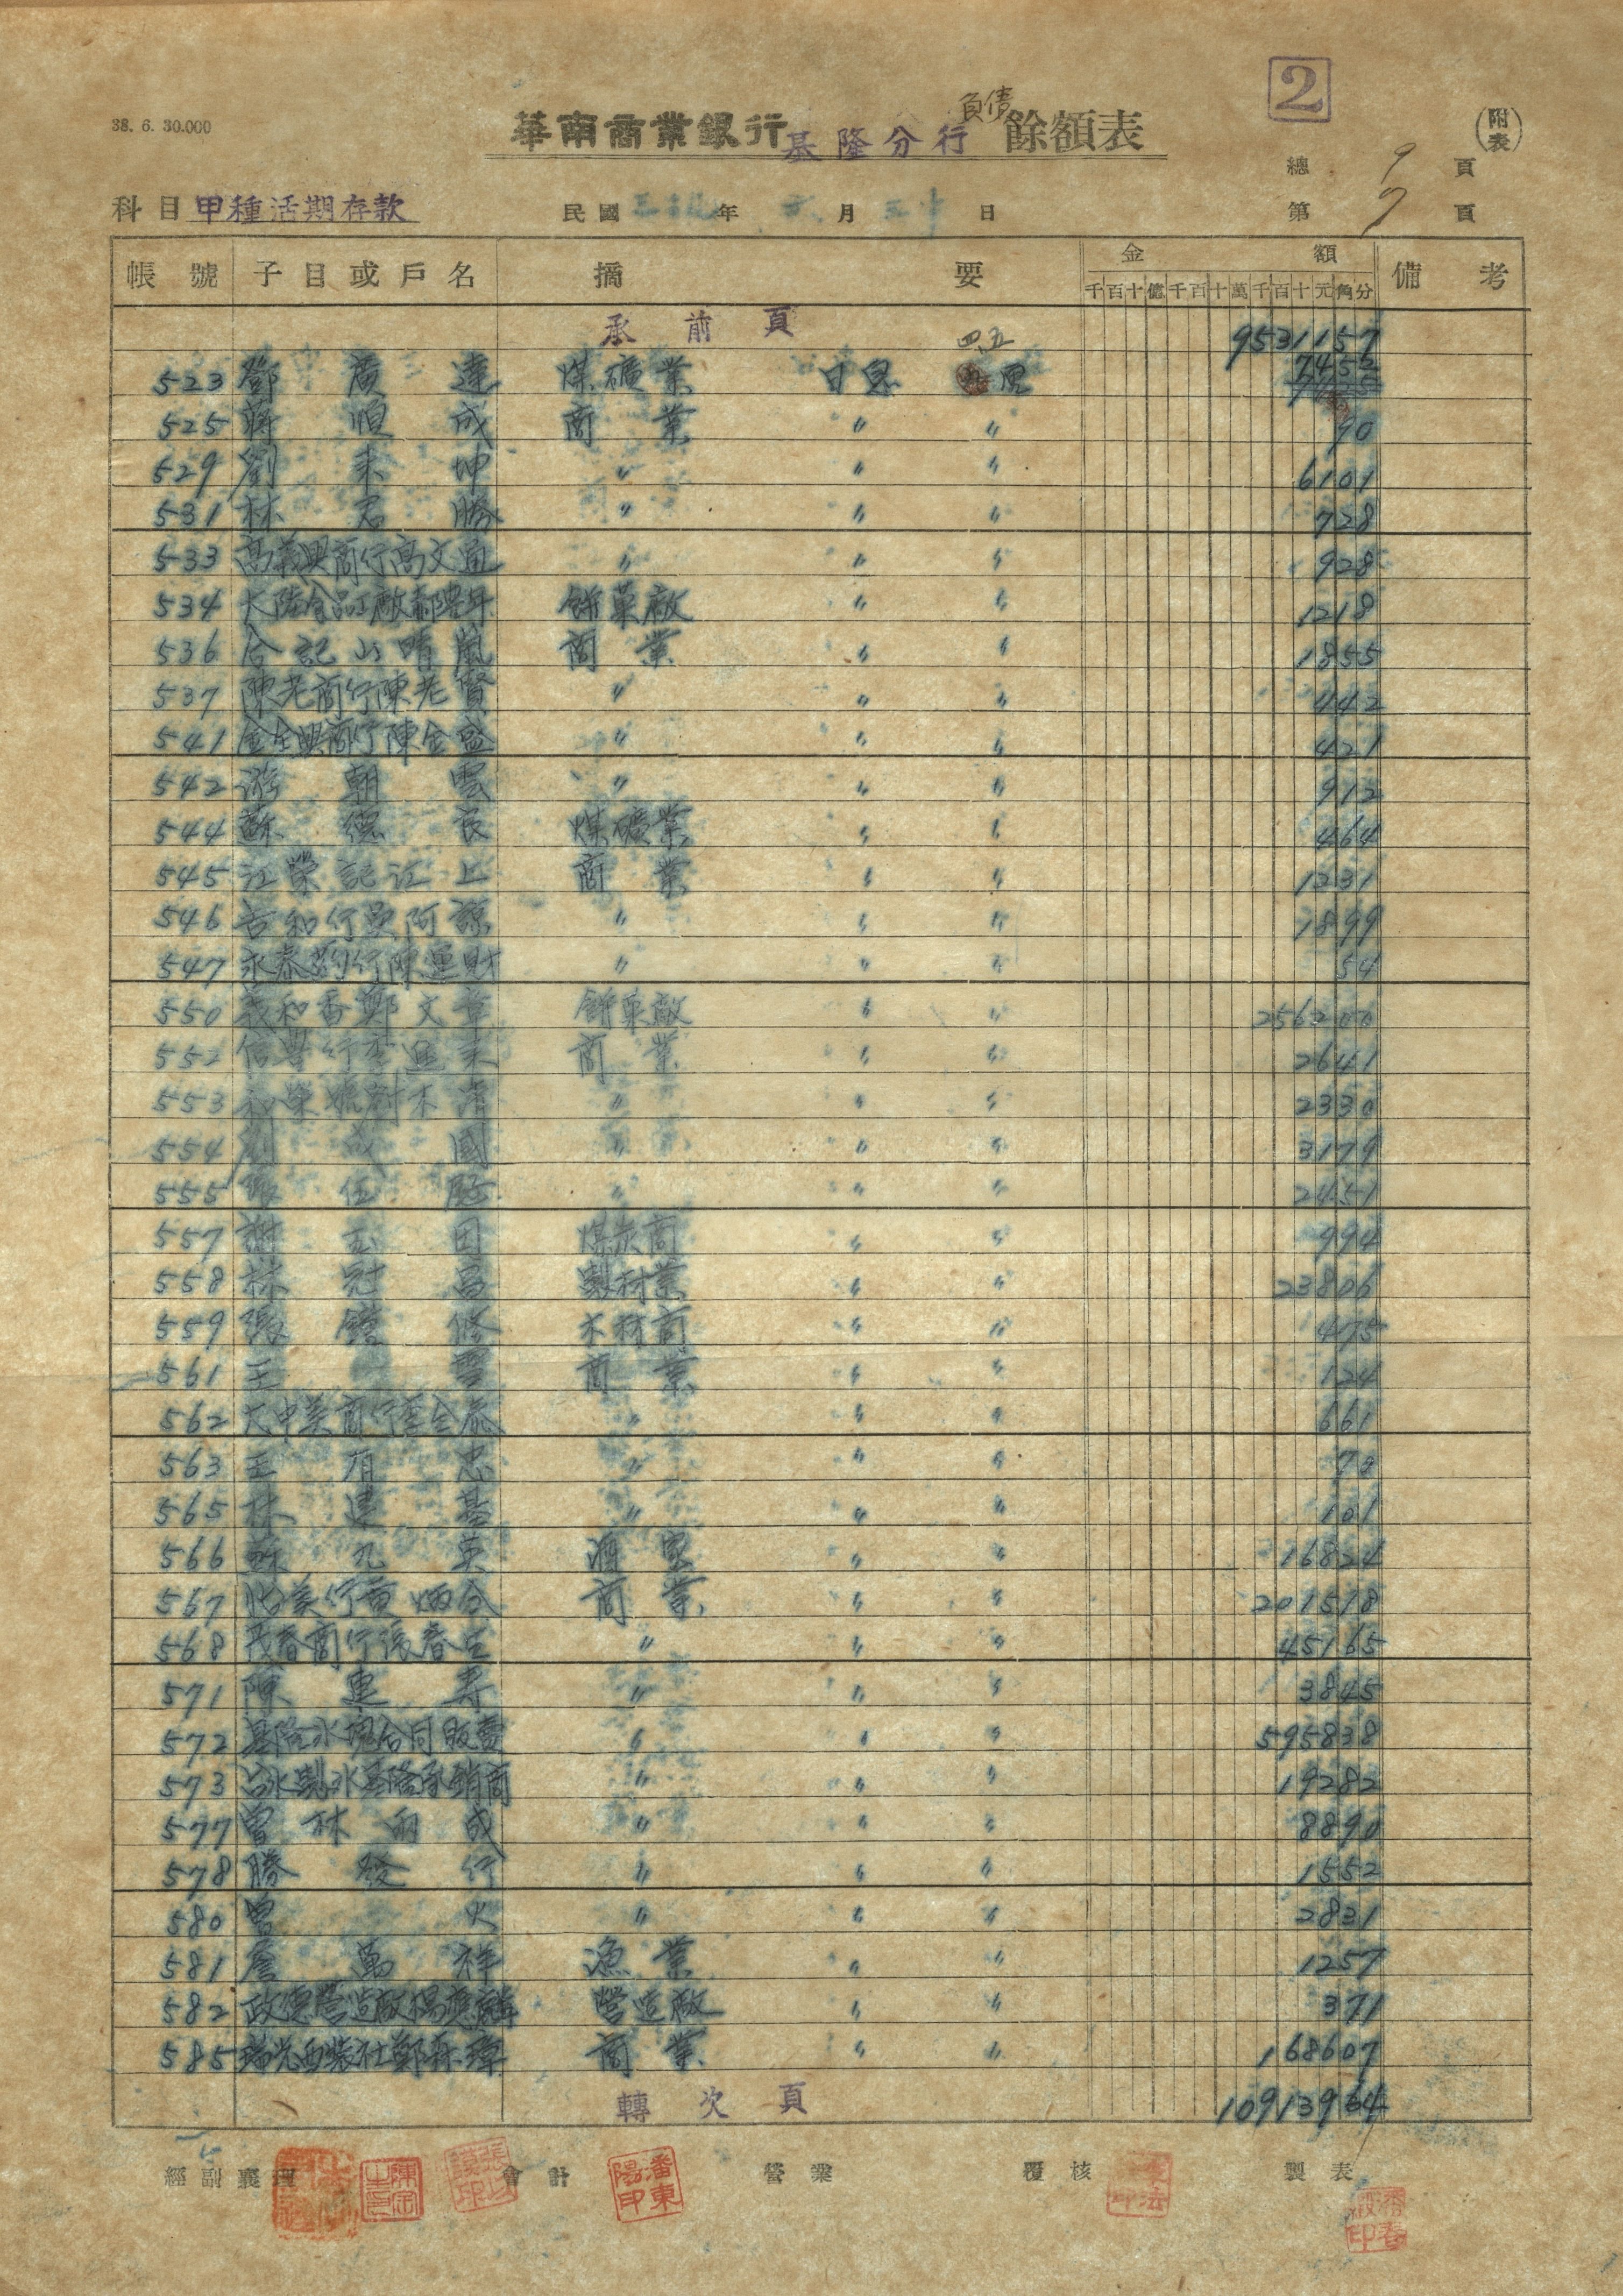 2
38. 6. 30.000
華南商業銀行基隆分行負債餘額表
附表
總 9 頁
科目 甲種活期存款 民國 年 六 月 三十 日 第 7 頁
帳號 子目或戶名 摘要 金額 備考
千百十億千百十萬千百十元角分
承前頁 9531157
四、五
523 鄧廣達 煤礦業 日息 厘 7452
525 蔣順成 商業 〃 〃 90
529 劉来坤 〃 〃 〃 6101
531 林君勝 〃 〃 〃 728
533 高義興商行高文通 〃 〃 〃 928
534 大陸食品工廠 餅菓廠 〃 〃 1218
536 合記山晴嵐 商業 〃 〃 1855
537 陳老商行陳老賢 〃 〃 〃 442
541 金全興商行陳金盛 〃 〃 〃 421
542 游朝雲 〃 〃 〃 912
544 蘇德良 煤礦業 〃 〃 464
545 江榮記江上 商業 〃 〃 1231
546 吉和行吳阿諒 〃 〃 〃 1899
547 永春葯行陳運財 〃 〃 〃 54
550 義和香鄭文章 餅菓廠 〃 〃 256200
552 信豐行李進来 商業 〃 〃 2641
553 和榮號謝木 〃 〃 〃 2330
554 劉成國 〃 〃 〃 3179
555 伍 〃 〃 〃 2451
557 謝玉田 煤炭商 〃 〃 994
558 林冠昌 製材業 〃 〃 23806
559 張鏗修 木材商 〃 〃 475
561 王雪 商業 〃 〃 124
562 大中美商行李金 〃 〃 〃 661
563 王有忠 〃 〃 〃 70
565 林建基 〃 〃 〃 101
566 蘇九英 酒家 〃 〃 16824
567 怡美行黃炳合 商業 〃 〃 201518
568 茂春商行張春生 〃 〃 〃 45165
571 陳連寿 〃 〃 〃 3845
572 基隆冰塊合同販賣 〃 〃 〃 595838
573 台水製冰基隆承銷商 〃 〃 〃 19282
577 曾林向成 〃 〃 〃 8890
578 勝發行 〃 〃 〃 1552
580 曾火 〃 〃 〃 2831
581 詹萬祥 漁業 〃 〃 1257
582 政德營造廠楊應麟 營造廠 〃 〃 371
585 瑞光西裝社鄭森璋 商業 〃 〃 168607
轉次頁 10913964
經副襄理 會計 營業 覆核 製表
潘東陽印